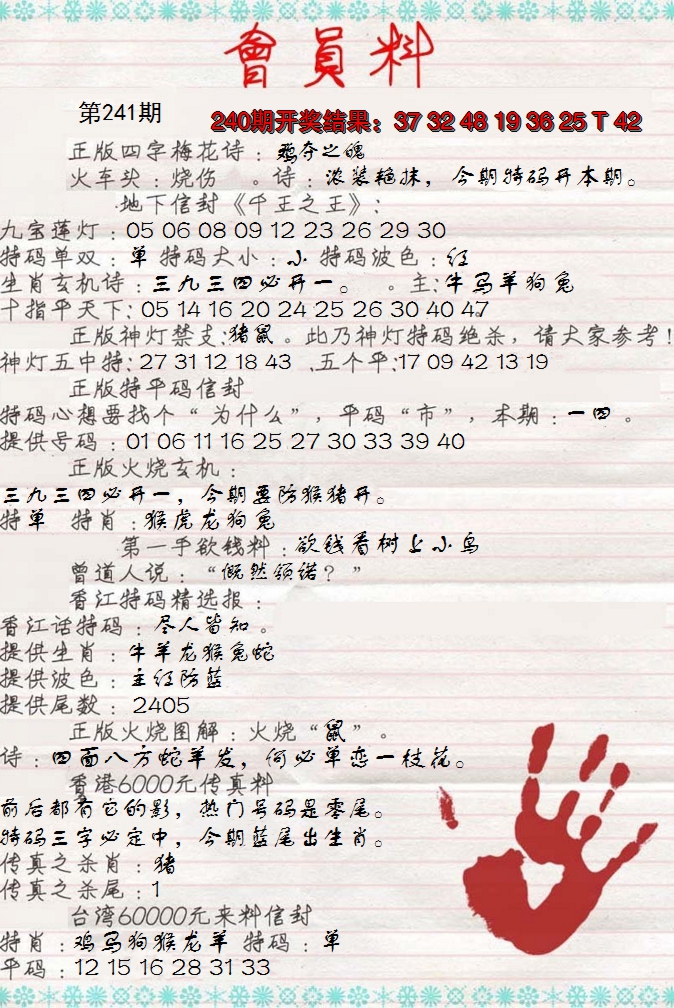 會員料
第241期
240期开奖结果：37 32 48 19 36 25 T 42
正版四字梅花诗：鸡夺之魄
火车头：烧伤 。诗：浓装艳抹，今期特码开本期。
地下信封《千王之王》：
九宝莲灯：05 06 08 09 12 23 26 29 30
特码单双：单 特码大小：小 特码波色：红
生肖玄机诗：三九三四必开一。 。主：牛马羊狗兔
十指平天下：05 14 16 20 24 25 26 30 40 47
正版神灯禁支：猪鼠。此乃神灯特码绝杀，请大家参考！
神灯五中特：27 31 12 18 43 、五个平：17 09 42 13 19
正版特平码信封
特码心想要找个“为什么”，平码“市”，本期：一四。
提供号码：01 06 11 16 25 27 30 33 39 40
正版火烧玄机：
三九三四必开一，今期要防猴猪开。
特单 特肖：猴虎龙狗兔
第一手欲钱料：欲钱看树上小鸟
曾道人说：“慨然领诺？”
香江特码精选报：
香江话特码：尽人皆知。
提供生肖：牛羊龙猴兔蛇
提供波色：主红防蓝
提供尾数：2405
正版火烧图解：火烧“鼠”。
诗：四面八方蛇羊发，何必单恋一枝花。
香港6000元传真料
前后都有它的影，热门号码是零尾。
特码三字必定中，今期蓝尾出生肖。
传真之杀肖：猪
传真之杀尾：1
台湾60000元来料信封
特肖：鸡马狗猴龙羊 特码：单
平码：12 15 16 28 31 33